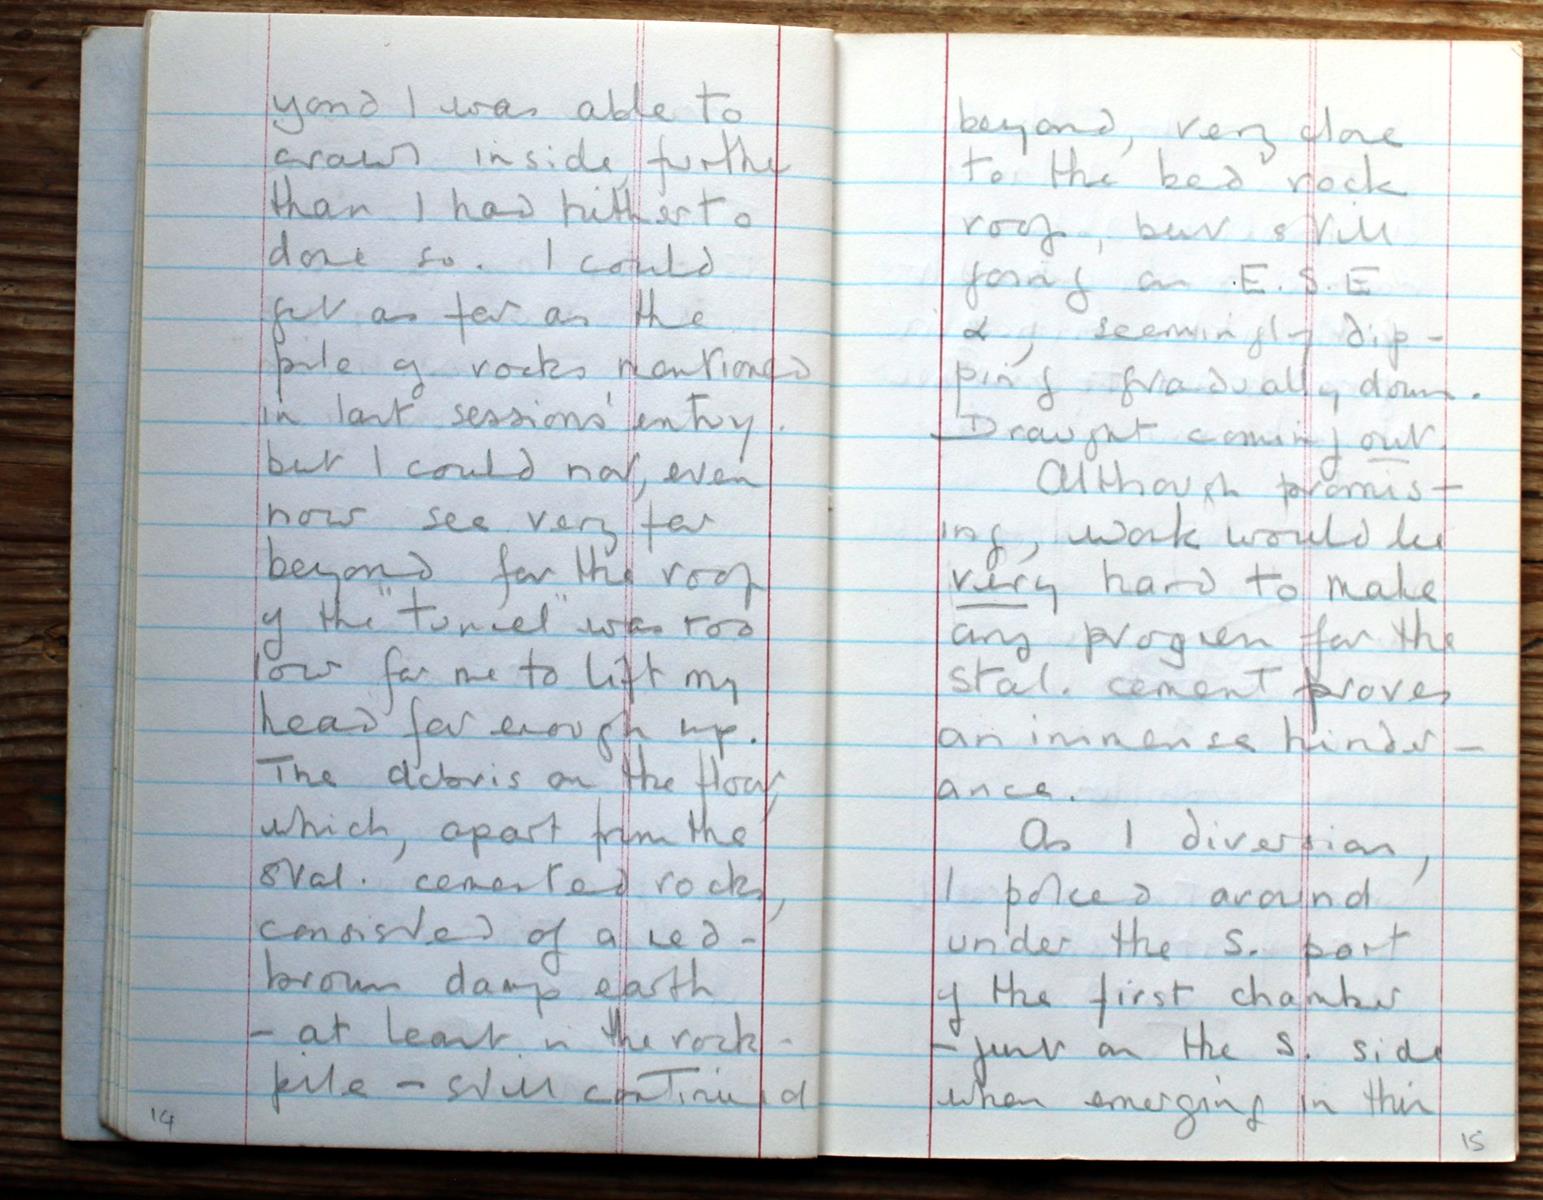 yond I was able to
crawl inside further
than I had hitherto
done so. I could
get as far as the
pile of rocks mentioned
in last sessions' entry.
but I could not, even
now see very far
beyond for the roof
of the "tunnel" was too
low for me to lift my
head far enough up.
The debris on the floor,
which, apart from the
stal. cemented rocks,
consisted of a red-
brown damp earth
- at least in the rock-
pile - still continued
14
beyond, very close
to the bed rock
roof, but still
going on E.S.E
&, seemingly dip-
ping gradually down.
Draught coming out
Although promis-
ing, work would be
very hard to make
any progress for the
stal. cement proves
an immense hinder-
ance.
As I diversion,
I poked around
under the S. part
of the first chamber
- just on the S. side
when emerging in this
15